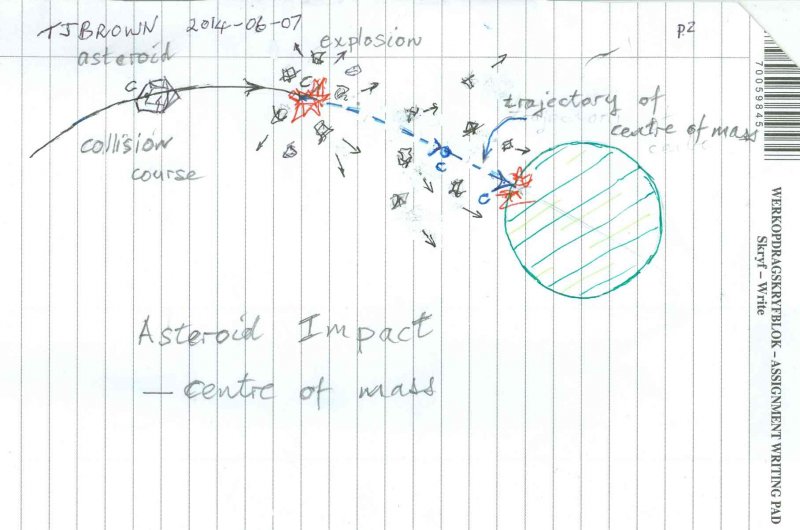 TJBROWN 2014-06-07
p2
asteroid
explosion
c
c
trajectory of
centre of mass
collision
course
c
c
Asteroid Impact
— centre of mass
70059845
WERKOPDRAGSKRYFBLOK – ASSIGNMENT WRITING PAD
Skryf – Write